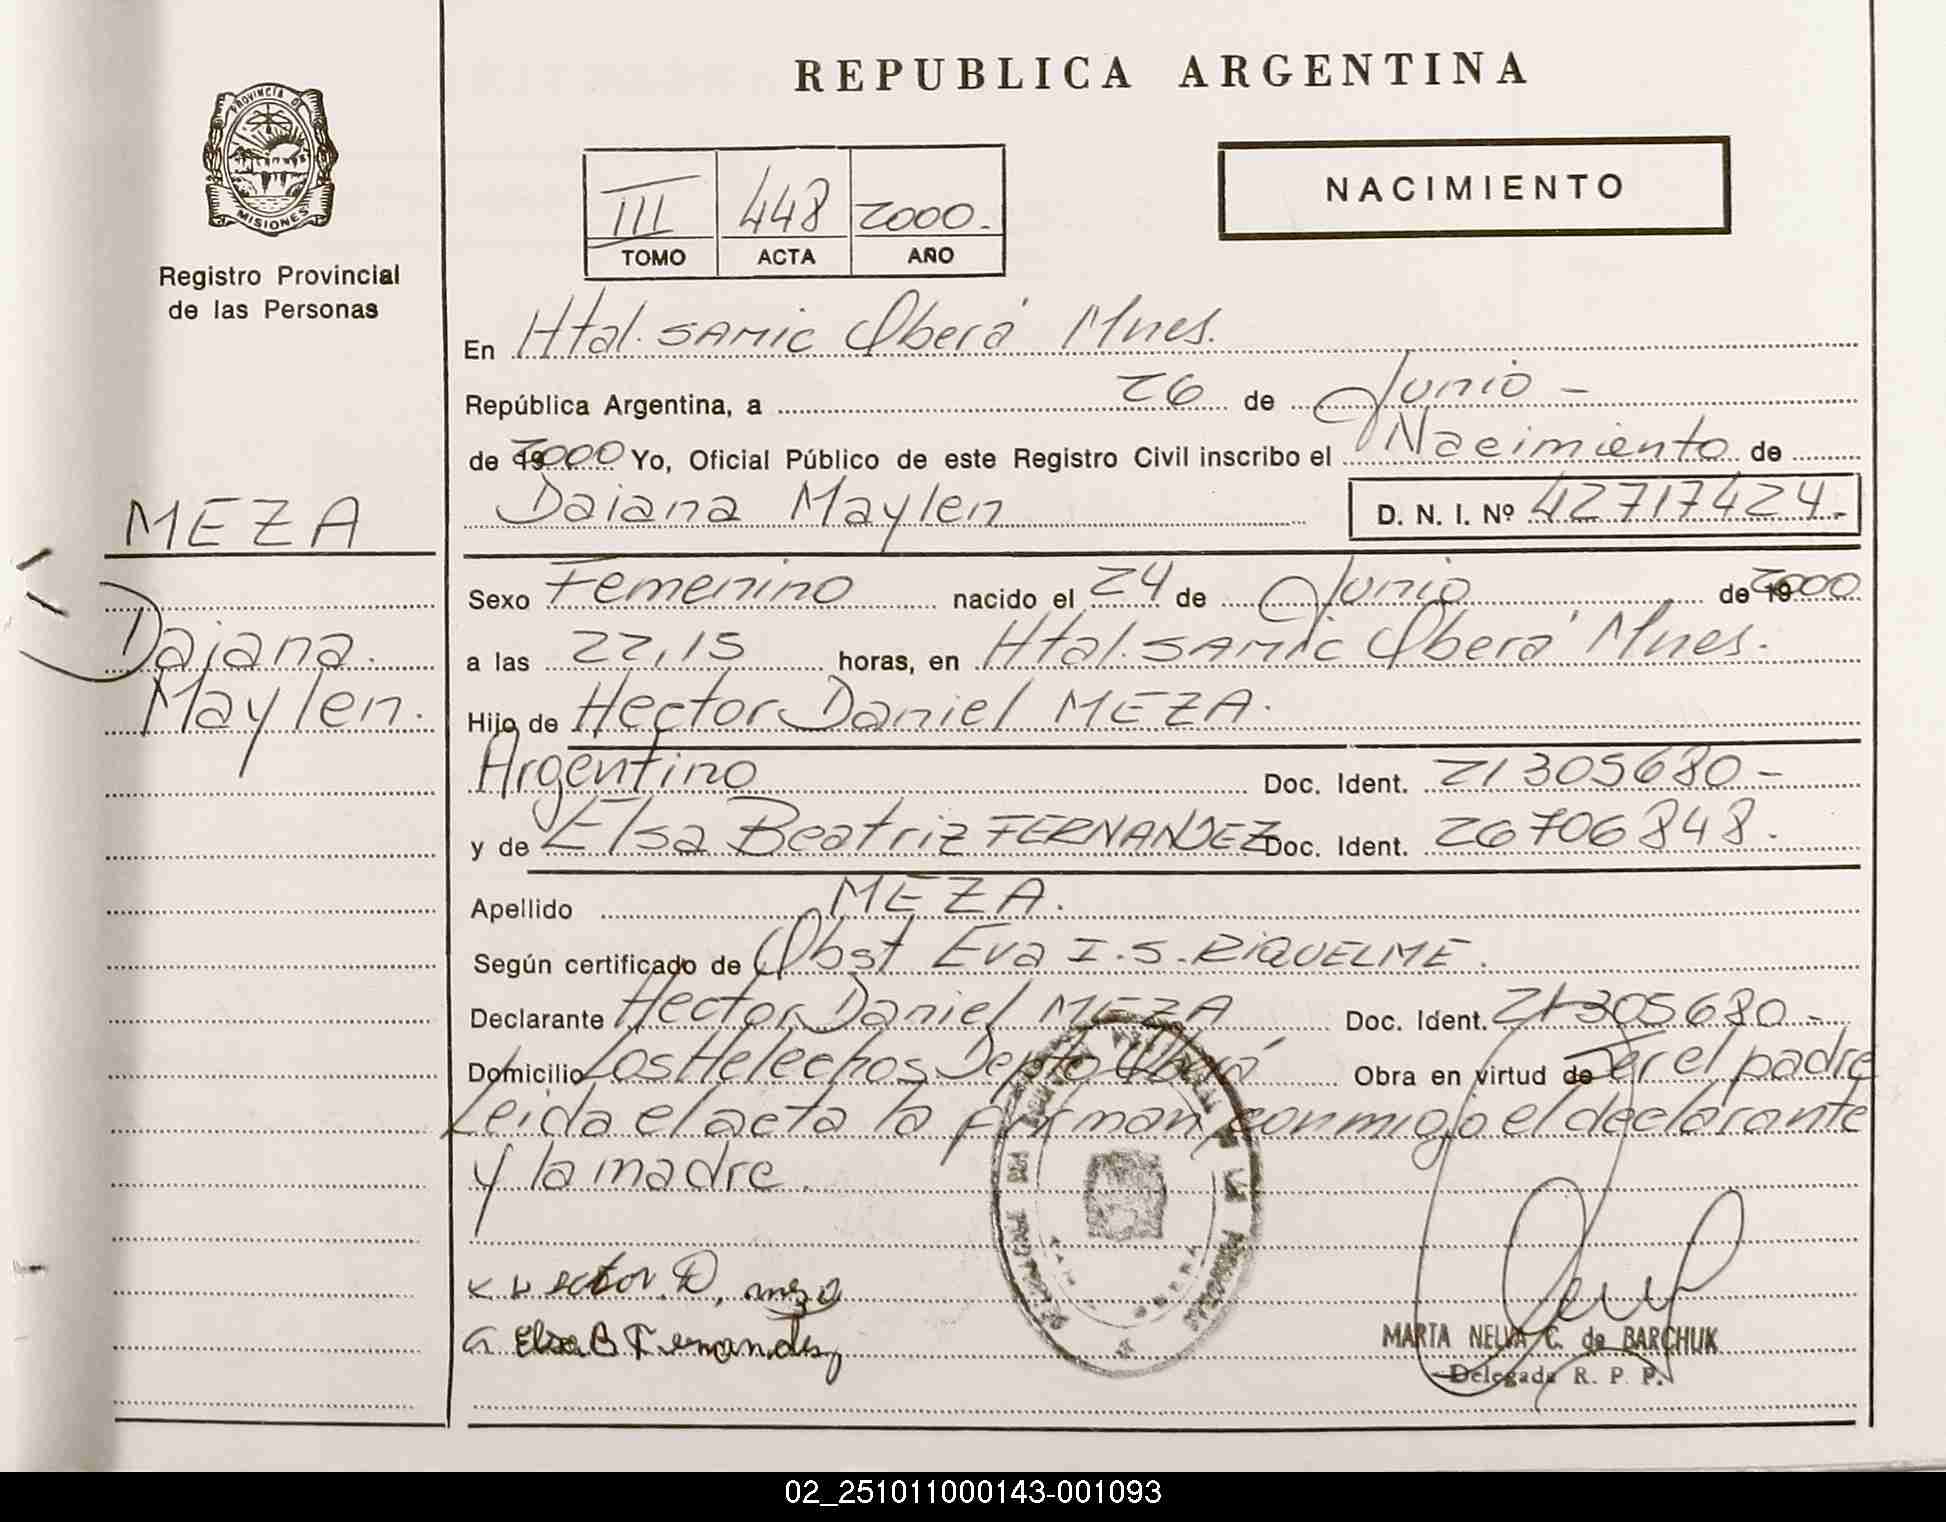 REPUBLICA ARGENTINA
PROVINCIA DE
MISIONES
Registro Provincial
de las Personas
III 448 2000.
TOMO ACTA AÑO
NACIMIENTO
En Htal. SAMIC Oberá Mnes.
República Argentina, a 26 de Junio -
de 2000 Yo, Oficial Público de este Registro Civil inscribo el Nacimiento de
Daiana Maylen D. N. I. Nº 42717424.-
MEZA
Daiana.
Maylen.
Sexo Femenino nacido el 24 de Junio de 2000
a las 22,15 horas, en Htal. SAMIC Oberá Mnes.
Hijo de Hector Daniel MEZA.
Argentino Doc. Ident. 21305680-
y de Elsa Beatriz FERNANDEZ Doc. Ident. 26706848.
Apellido MEZA.
Según certificado de Obst Eva I. S. RIQUELME.
Declarante Hector Daniel MEZA Doc. Ident. 21305680-
Domicilio Los Helechos Depto Oberá Obra en virtud de Ser el padre
Leida el acta la firman conmigo el declarante
y la madre.
Hector. D. meza
Elsa B Fernandez
MARTA NELVA C. de BARCHUK
Delegada R. P. P.
02_251011000143-001093